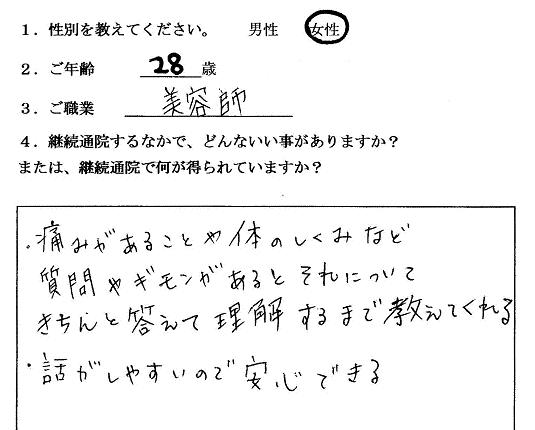 1．性別を教えてください。　男性　女性
2．ご年齢　28歳
3．ご職業　美容師
4．継続通院するなかで、どんないい事がありますか？
または、継続通院で何が得られていますか？
・痛みがあることや体のしくみなど
質問やギモンがあるとそれについて
きちんと答えて理解するまで教えてくれる
・話がしやすいので安心できる